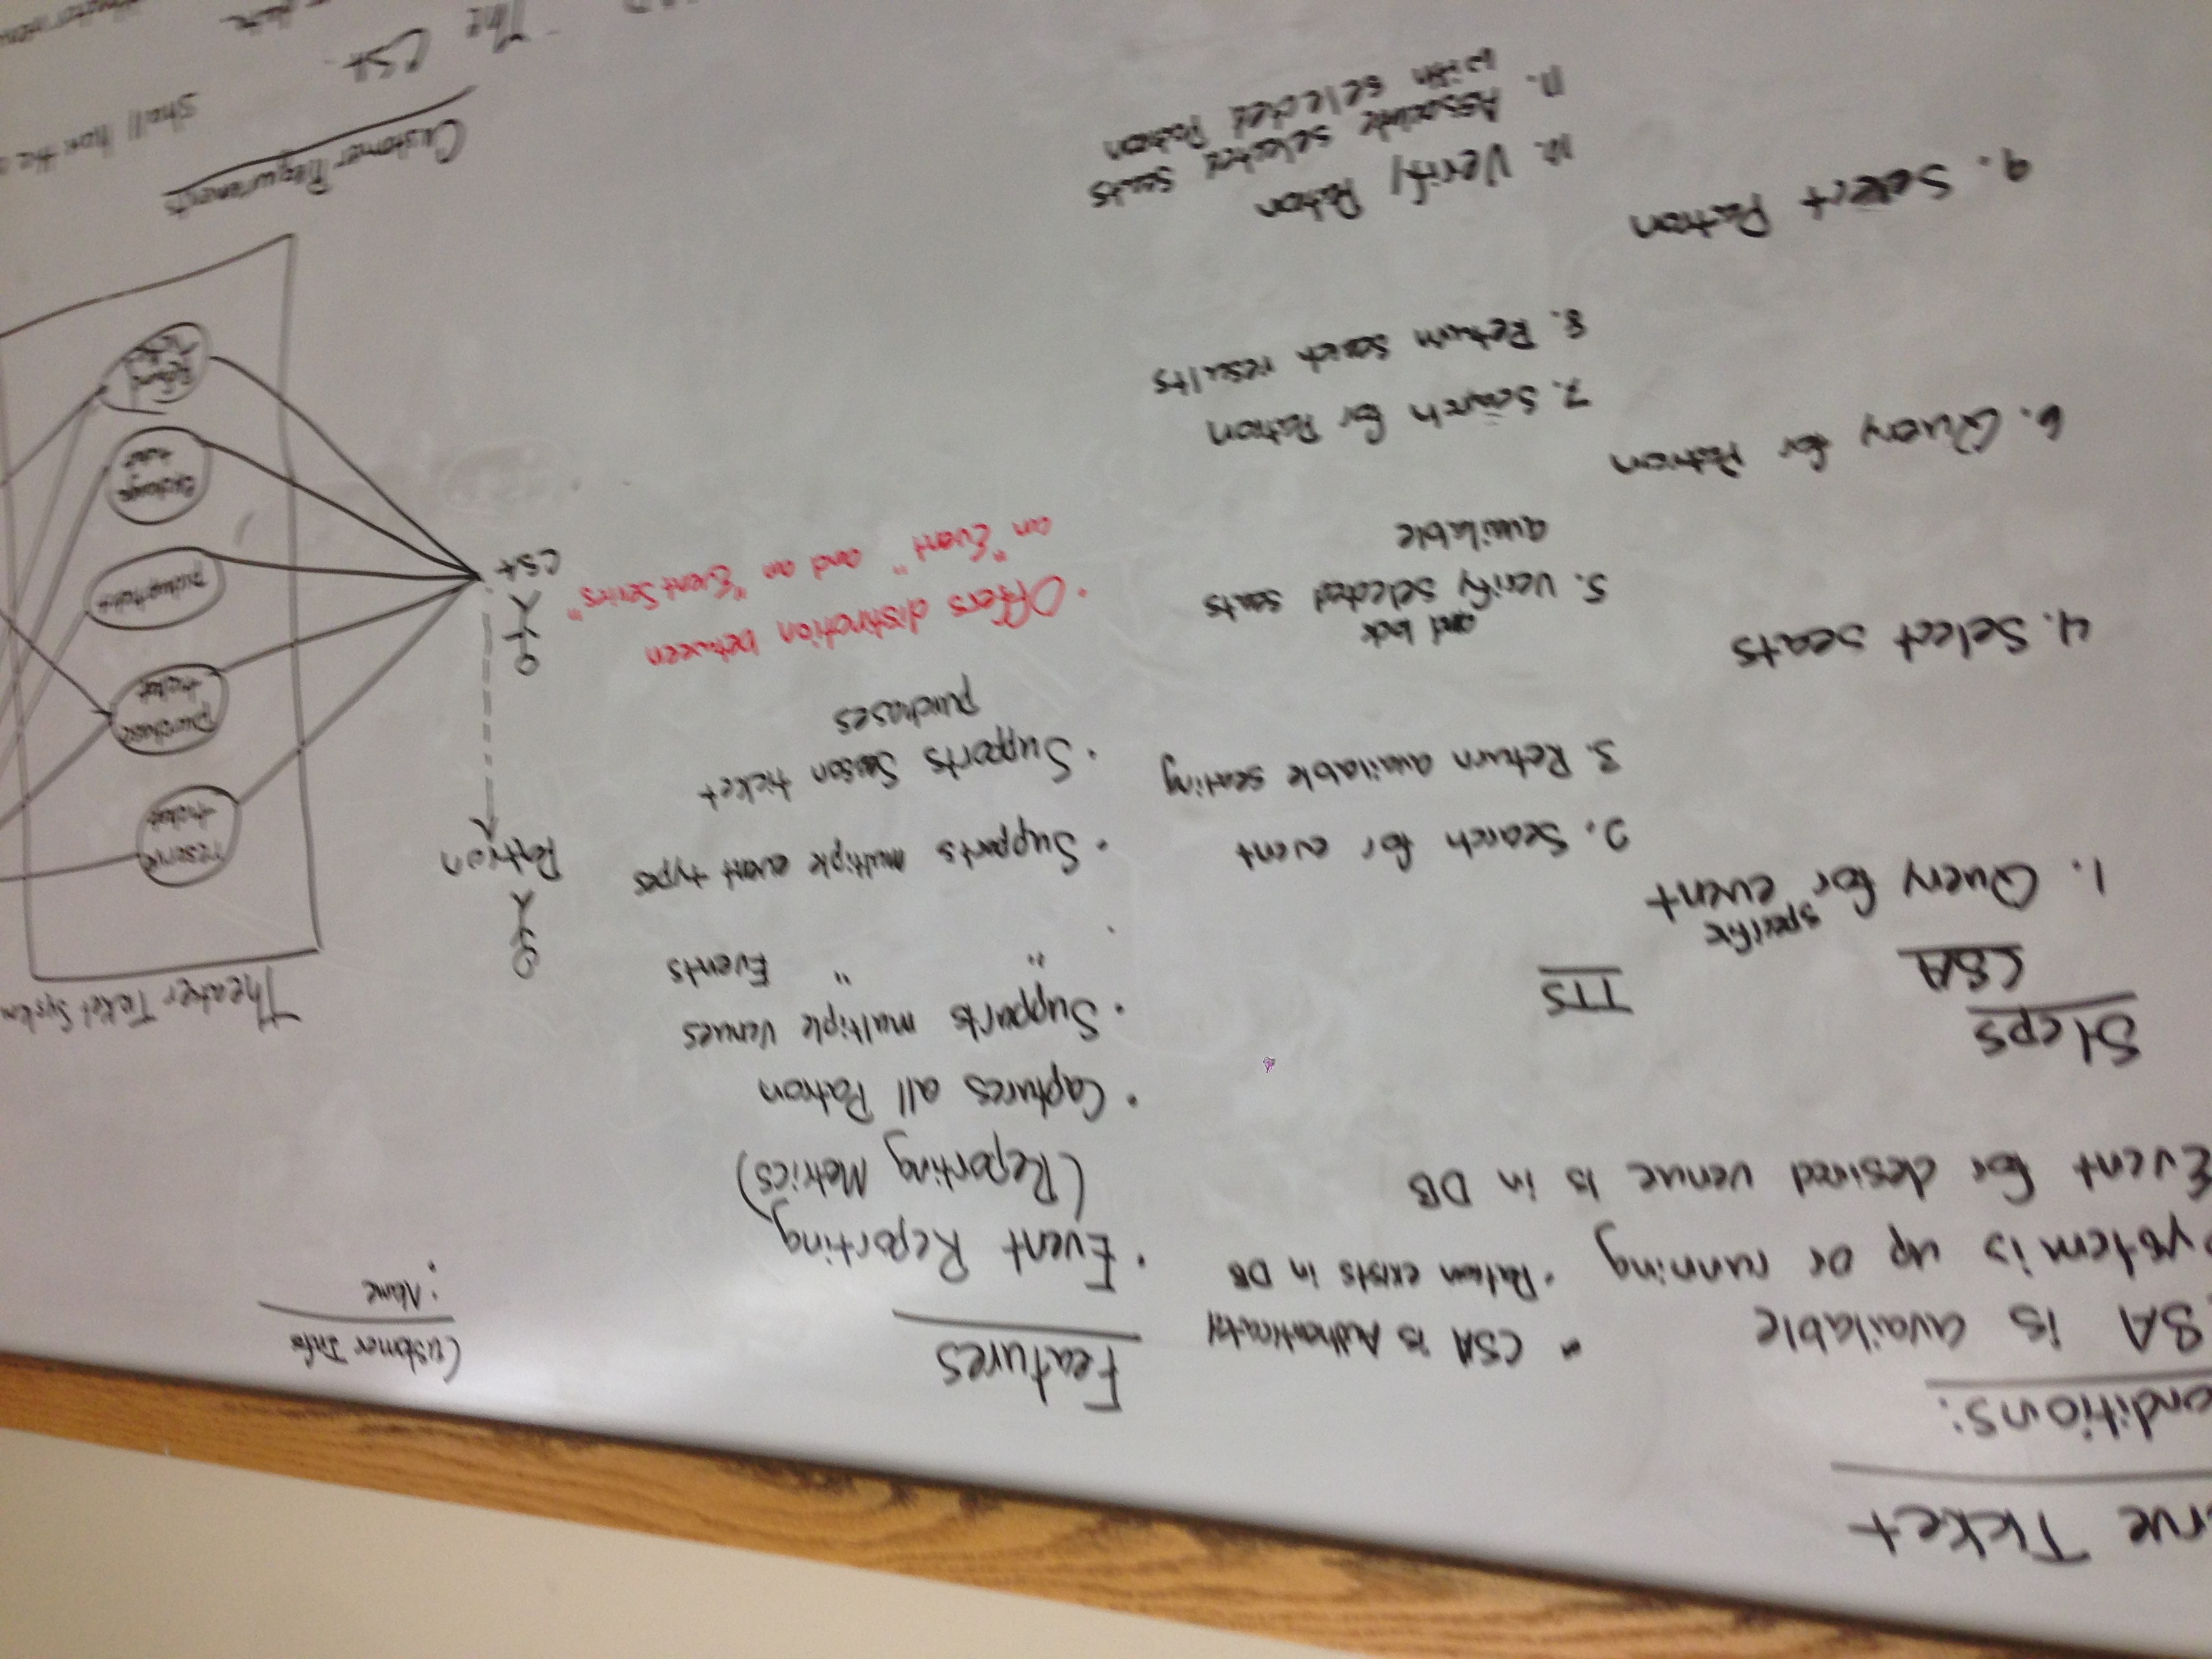 rve Ticket
onditions:
SA is available
ystem is up or running
Event for desired venue is in DB
CSA is Authenticated
• Patron exists in DB
Steps
CSA
TTS
1. Query for specific event
2. Search for event
3. Return available seating
4. Select seats
and lock
5. Verify selected seats
available
6. Query for Patron
7. Search for Patron
8. Return search results
9. Select Patron
10. Verify Patron
11. Associate selected seats
with selected Patron
Features
• Event Reporting
(Reporting Metrics)
• Captures all Patron
• Supports multiple venues
" " Events
• Supports multiple event types
• Supports Season ticket
purchases
• Offers distinction between
an "Event" and an "Event Series"
Customer Info
• Name
•
Patron
CSA
Theater Ticket System
reserve
ticket
purchase
ticket
pickup ticket
exchange
ticket
Refund
Ticket
Customer Requirements
The CSA shall have the
date